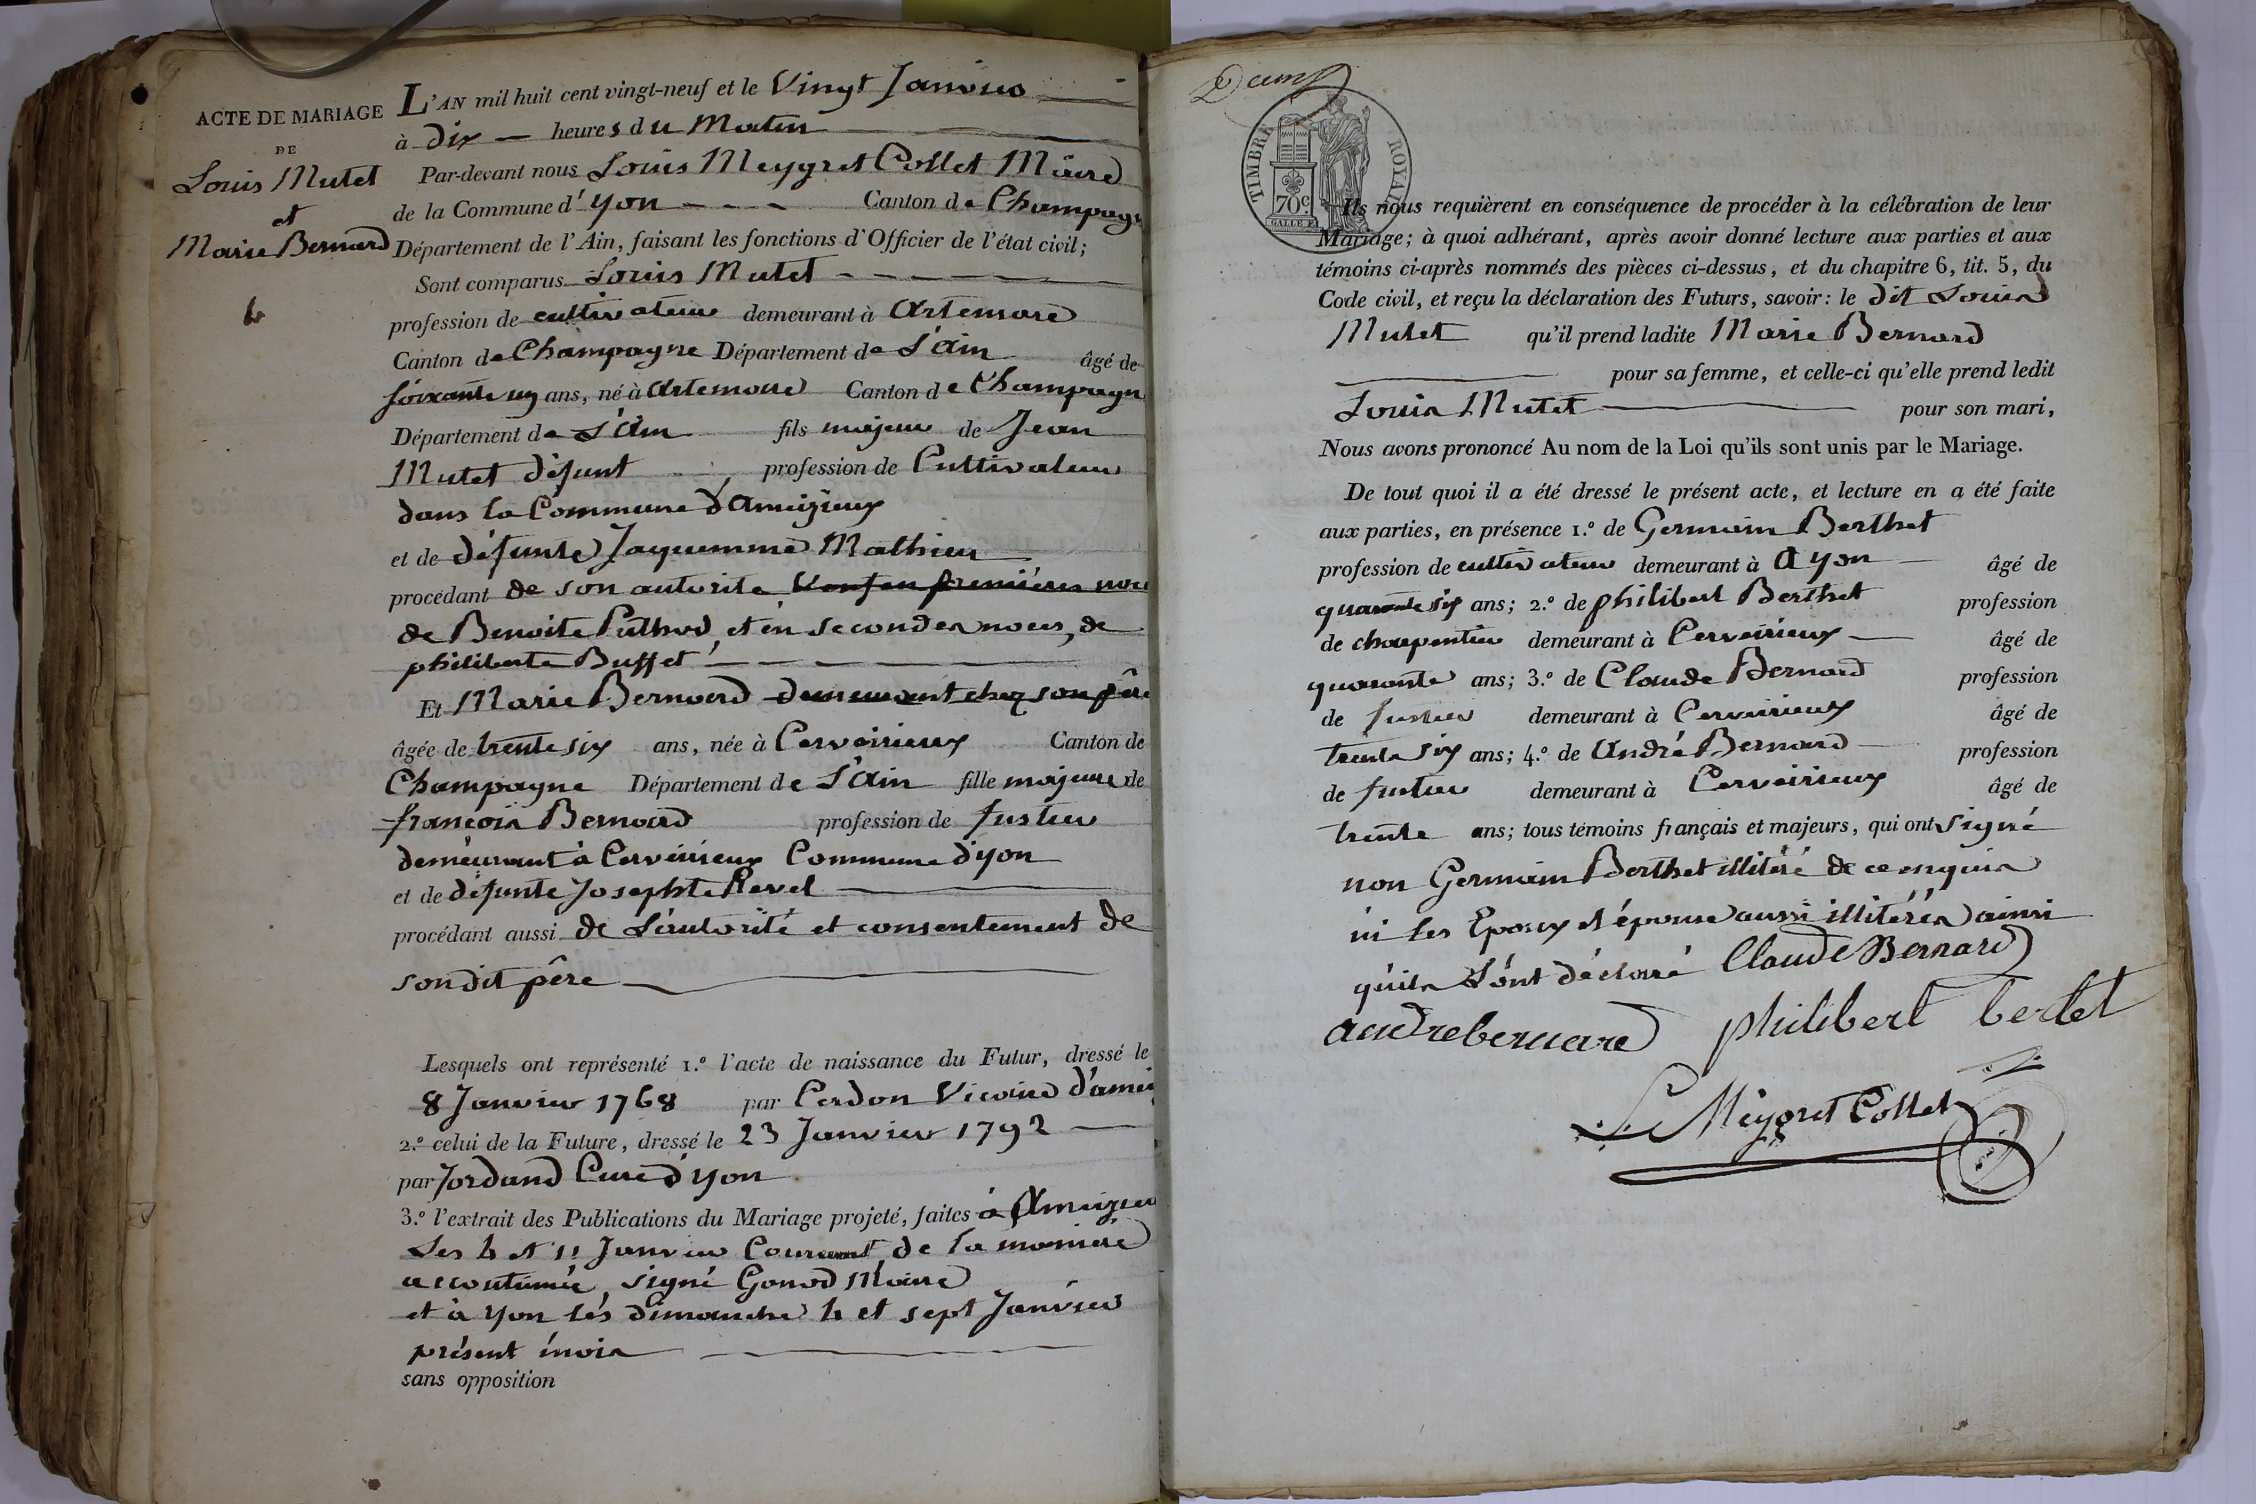 ACTE DE MARIAGE
DE
Louis Mutet
et
Marie Bernard
6
L'AN mil huit cent vingt-neuf et le Vingt Janvier
à dix heures du Matin
Par-devant nous Louis Meygret Collet Maire
de la Commune d'yon Canton de Champagn
Département de l'Ain, faisant les fonctions d'Officier de l'état civil;
Sont comparus Louis Mutet
profession de cultivateur demeurant à Artemare
Canton de Champagne Département de L'ain âgé de
soixante un ans, né à Artemare Canton de Champagn
Département de L'ain fils majeur de Jean
Mutet défunt profession de Cultivateur
dans la Commune d'Ameizieux
et de défunte Jaquemme Mathieu
procédant de son autorite premières noc
de Benoite Puthod et en secondes noces, de
philiberte Buffet
Et Marie Bernard demeurant chez son père
âgée de trente six ans, née à Cerveirieux Canton de
Champagne Département de L'ain fille majeure de
françois Bernard profession de Justier
demeurant à Cerveirieux Commune d'yon
et de défunte Josephte Revel
procédant aussi de L'autorité et consentement de
son dit père
Lesquels ont représenté 1.º l'acte de naissance du Futur, dressé le
8 Janvier 1768 par Cerdon Vicaire d'amei
2.º celui de la Future, dressé le 23 Janvier 1792
par Jordand Curé d'yon
3.º l'extrait des Publications du Mariage projeté, faites à Ameizieu
Les 4 et 11 Janvier Courant de la manière
accoutumée, signé Gonod Maire
et à yon les dimanche 4 et sept Janvier
présent mois
sans opposition
TIMBRE ROYAL
70c
Ils nous requièrent en conséquence de procéder à la célébration de leur
Mariage; à quoi adhérant, après avoir donné lecture aux parties et aux
témoins ci-après nommés des pièces ci-dessus, et du chapitre 6, tit. 5, du
Code civil, et reçu la déclaration des Futurs, savoir: le dit Louis
Mutet qu'il prend ladite Marie Bernard
pour sa femme, et celle-ci qu'elle prend ledit
Louis Mutet pour son mari,
Nous avons prononcé Au nom de la Loi qu'ils sont unis par le Mariage.
De tout quoi il a été dressé le présent acte, et lecture en a été faite
aux parties, en présence 1.º de Germain Berthet
profession de cultivateur demeurant à A yon âgé de
quarante six ans; 2.º de philibert Berthet profession
de charpentier demeurant à Cerveirieux âgé de
quarante ans; 3.º de Claude Bernard profession
de Justier demeurant à Cerveirieux âgé de
trente six ans; 4.º de André Bernard profession
de Justier demeurant à Cerveirieux âgé de
trente ans; tous témoins français et majeurs, qui ont signé
non Germain Berthet illitéré de ce enquis
ni les Epoux et épouse aussi illitérés ainsi
qu'ils L'ont déclaré Claude Bernard
andre bernard philibert bertet
L Meygret Collet